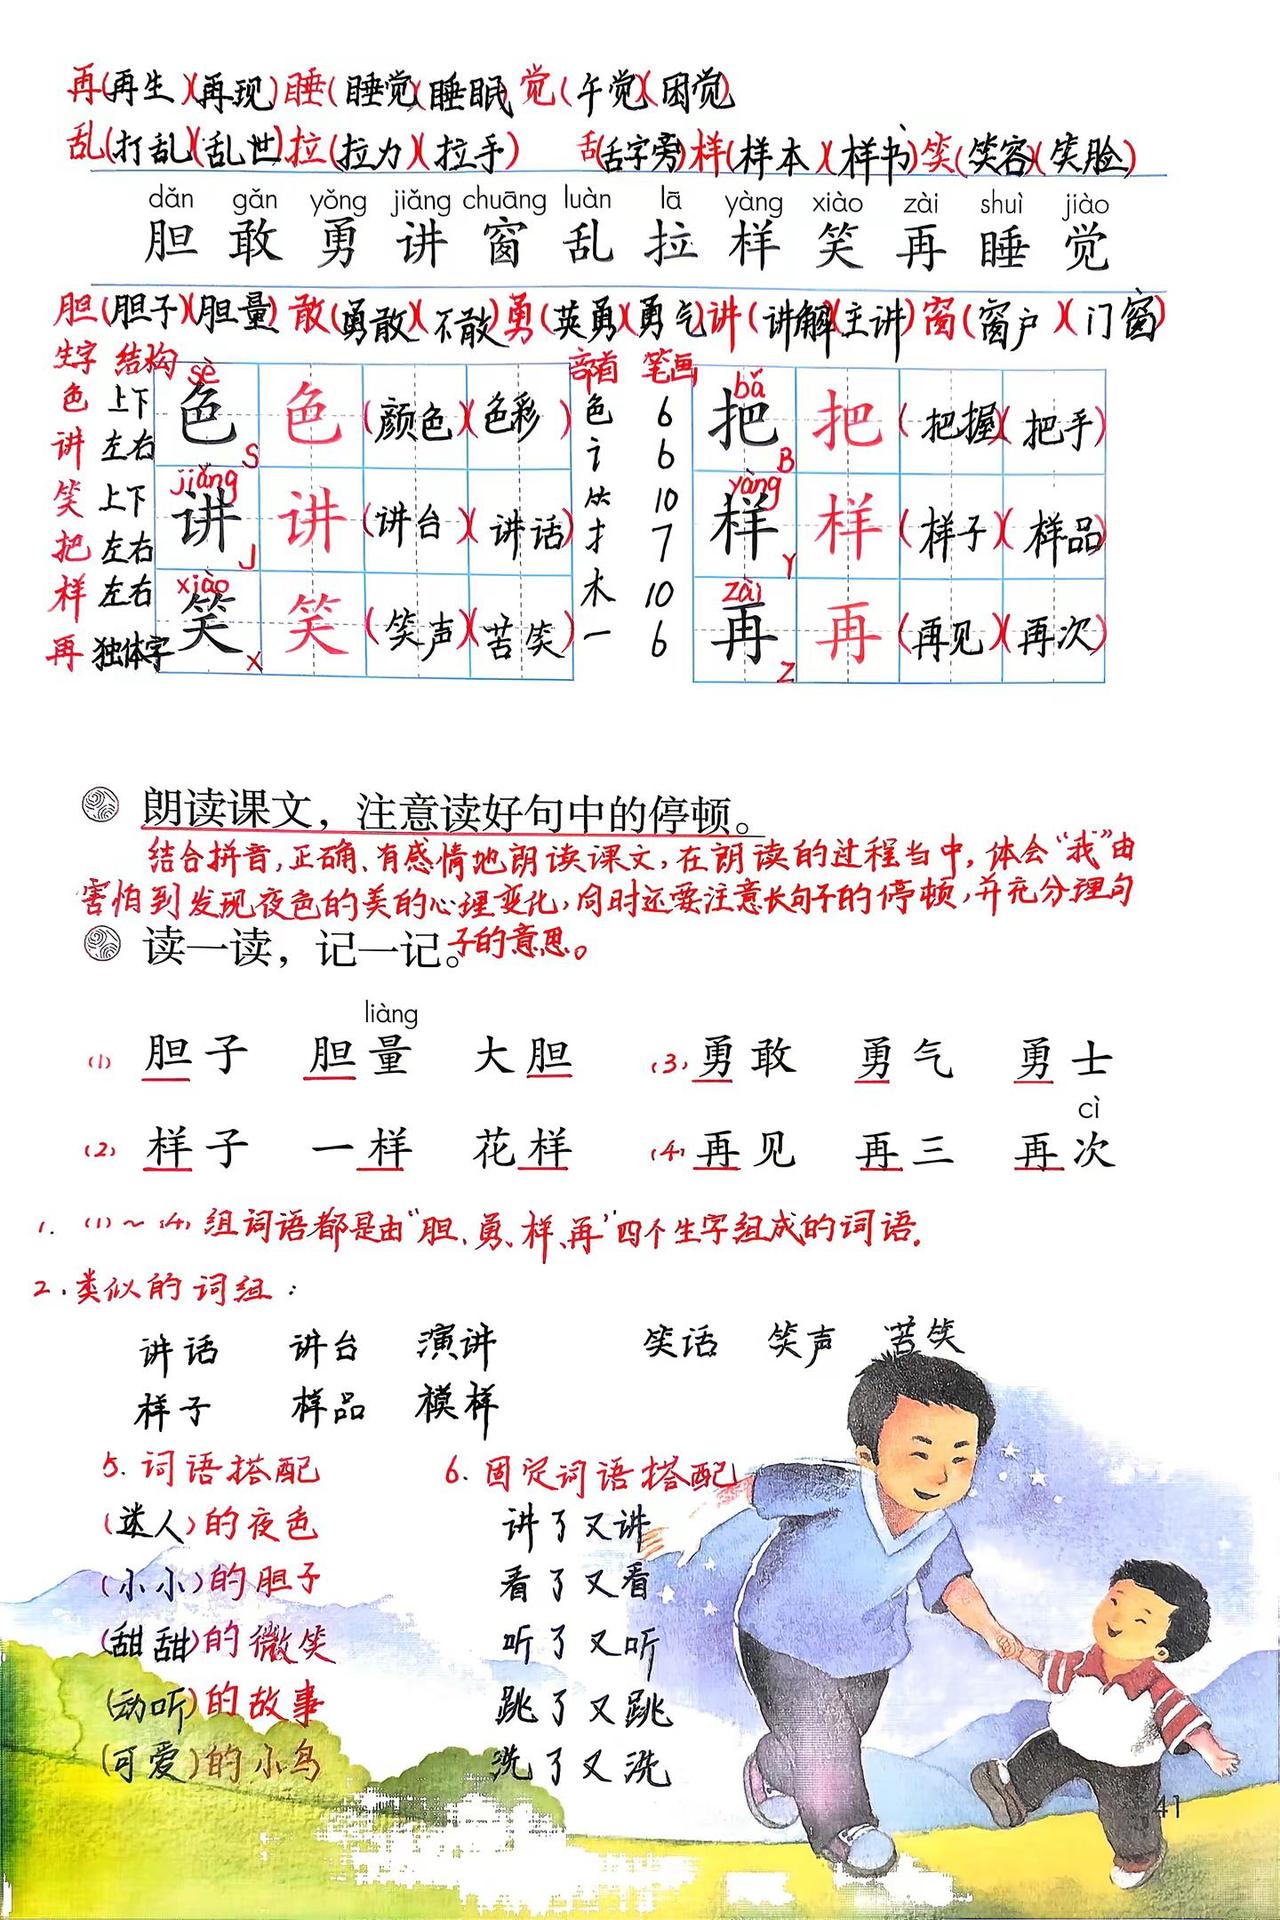 再(再生)(再现)睡(睡觉)(睡眠)觉(午觉)(困觉)
乱(打乱)(乱世)拉(拉力)(拉手) 乱(舌字旁)样(样本)(样书)笑(笑容)(笑脸)
dǎn gǎn yǒng jiǎng chuāng luàn lā yàng xiào zài shuì jiào
胆 敢 勇 讲 窗 乱 拉 样 笑 再 睡 觉
胆(胆子)(胆量) 敢(勇敢)(不敢)勇(英勇)(勇气)讲(讲解)(主讲)窗(窗户)(门窗)
生字 结构 sè 部首 笔画 bǎ
色 上下 色 S 色 (颜色)(色彩) 色 6 把 B 把 (把握)(把手)
讲 左右 jiǎng 讲 J 讲 (讲台)(讲话) 讠 6 yàng 样 Y 样 (样子)(样品)
笑 上下 ⺮ 10
把 左右 扌 7
样 左右 xiào 笑 X 笑 (笑声)(苦笑) 木 10 zài 再 Z 再 (再见)(再次)
再 独体字 一 6
朗读课文，注意读好句中的停顿。
结合拼音,正确、有感情地朗读课文,在朗读的过程当中,体会“我”由
害怕到发现夜色的美的心理变化,同时还要注意长句子的停顿,并充分理句
读一读，记一记。子的意思。
liàng
(1) 胆子 胆量 大胆 (3) 勇敢 勇气 勇士
cì
(2) 样子 一样 花样 (4) 再见 再三 再次
1. (1)~(4)组词语都是由“胆、勇、样、再”四个生字组成的词语。
2.类似的词组:
讲话 讲台 演讲 笑话 笑声 苦笑
样子 样品 模样
5.词语搭配 6.固定词语搭配
(迷人)的夜色 讲了又讲
(小小)的胆子 看了又看
(甜甜)的微笑 听了又听
(动听)的故事 跳了又跳
(可爱)的小鸟 洗了又洗
41